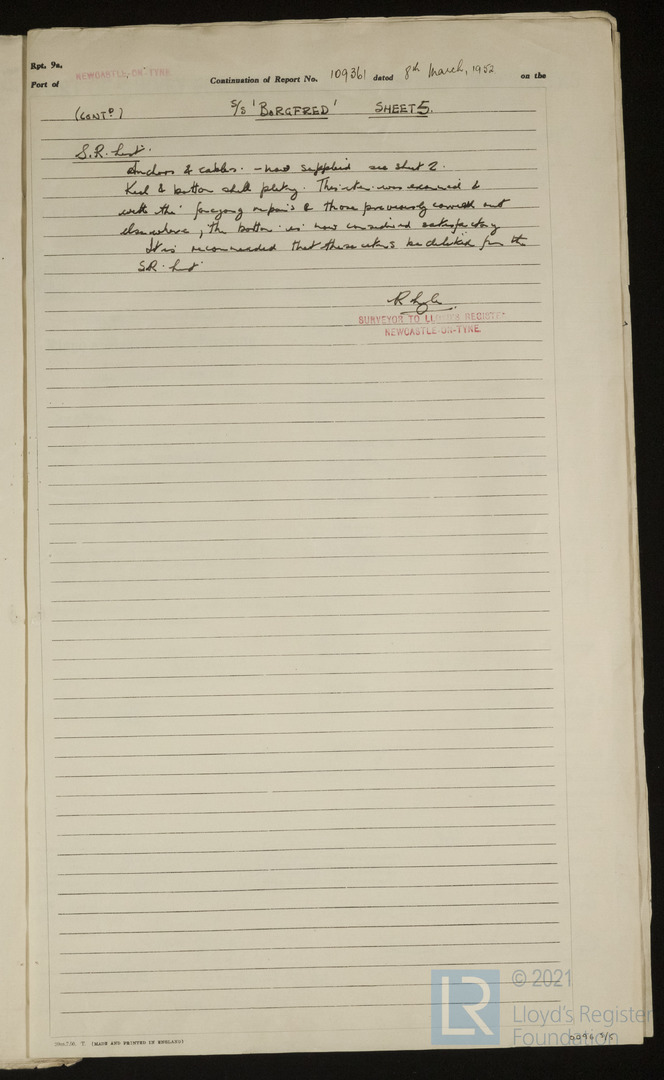 Rpt. 9a.
Port of NEWCASTLE-ON-TYNE Continuation of Report No. 109361 dated 8th March, 1952 on the
(CONTD) S/S 'BORGFRED' SHEET 5.
S.R. List.
Anchors & cables. - now supplied see sheet 2.
Keel & bottom shell plating. This item was examined &
with the foregoing repairs & those previously carried out
elsewhere, the bottom is now considered satisfactory
It is recommended that these items be deleted from the
S.R. List.
SURVEYOR TO LLOYD'S REGISTER
NEWCASTLE-ON-TYNE.
T. (MADE AND PRINTED IN ENGLAND)
© 2021
LR Lloyd's Register
Foundation